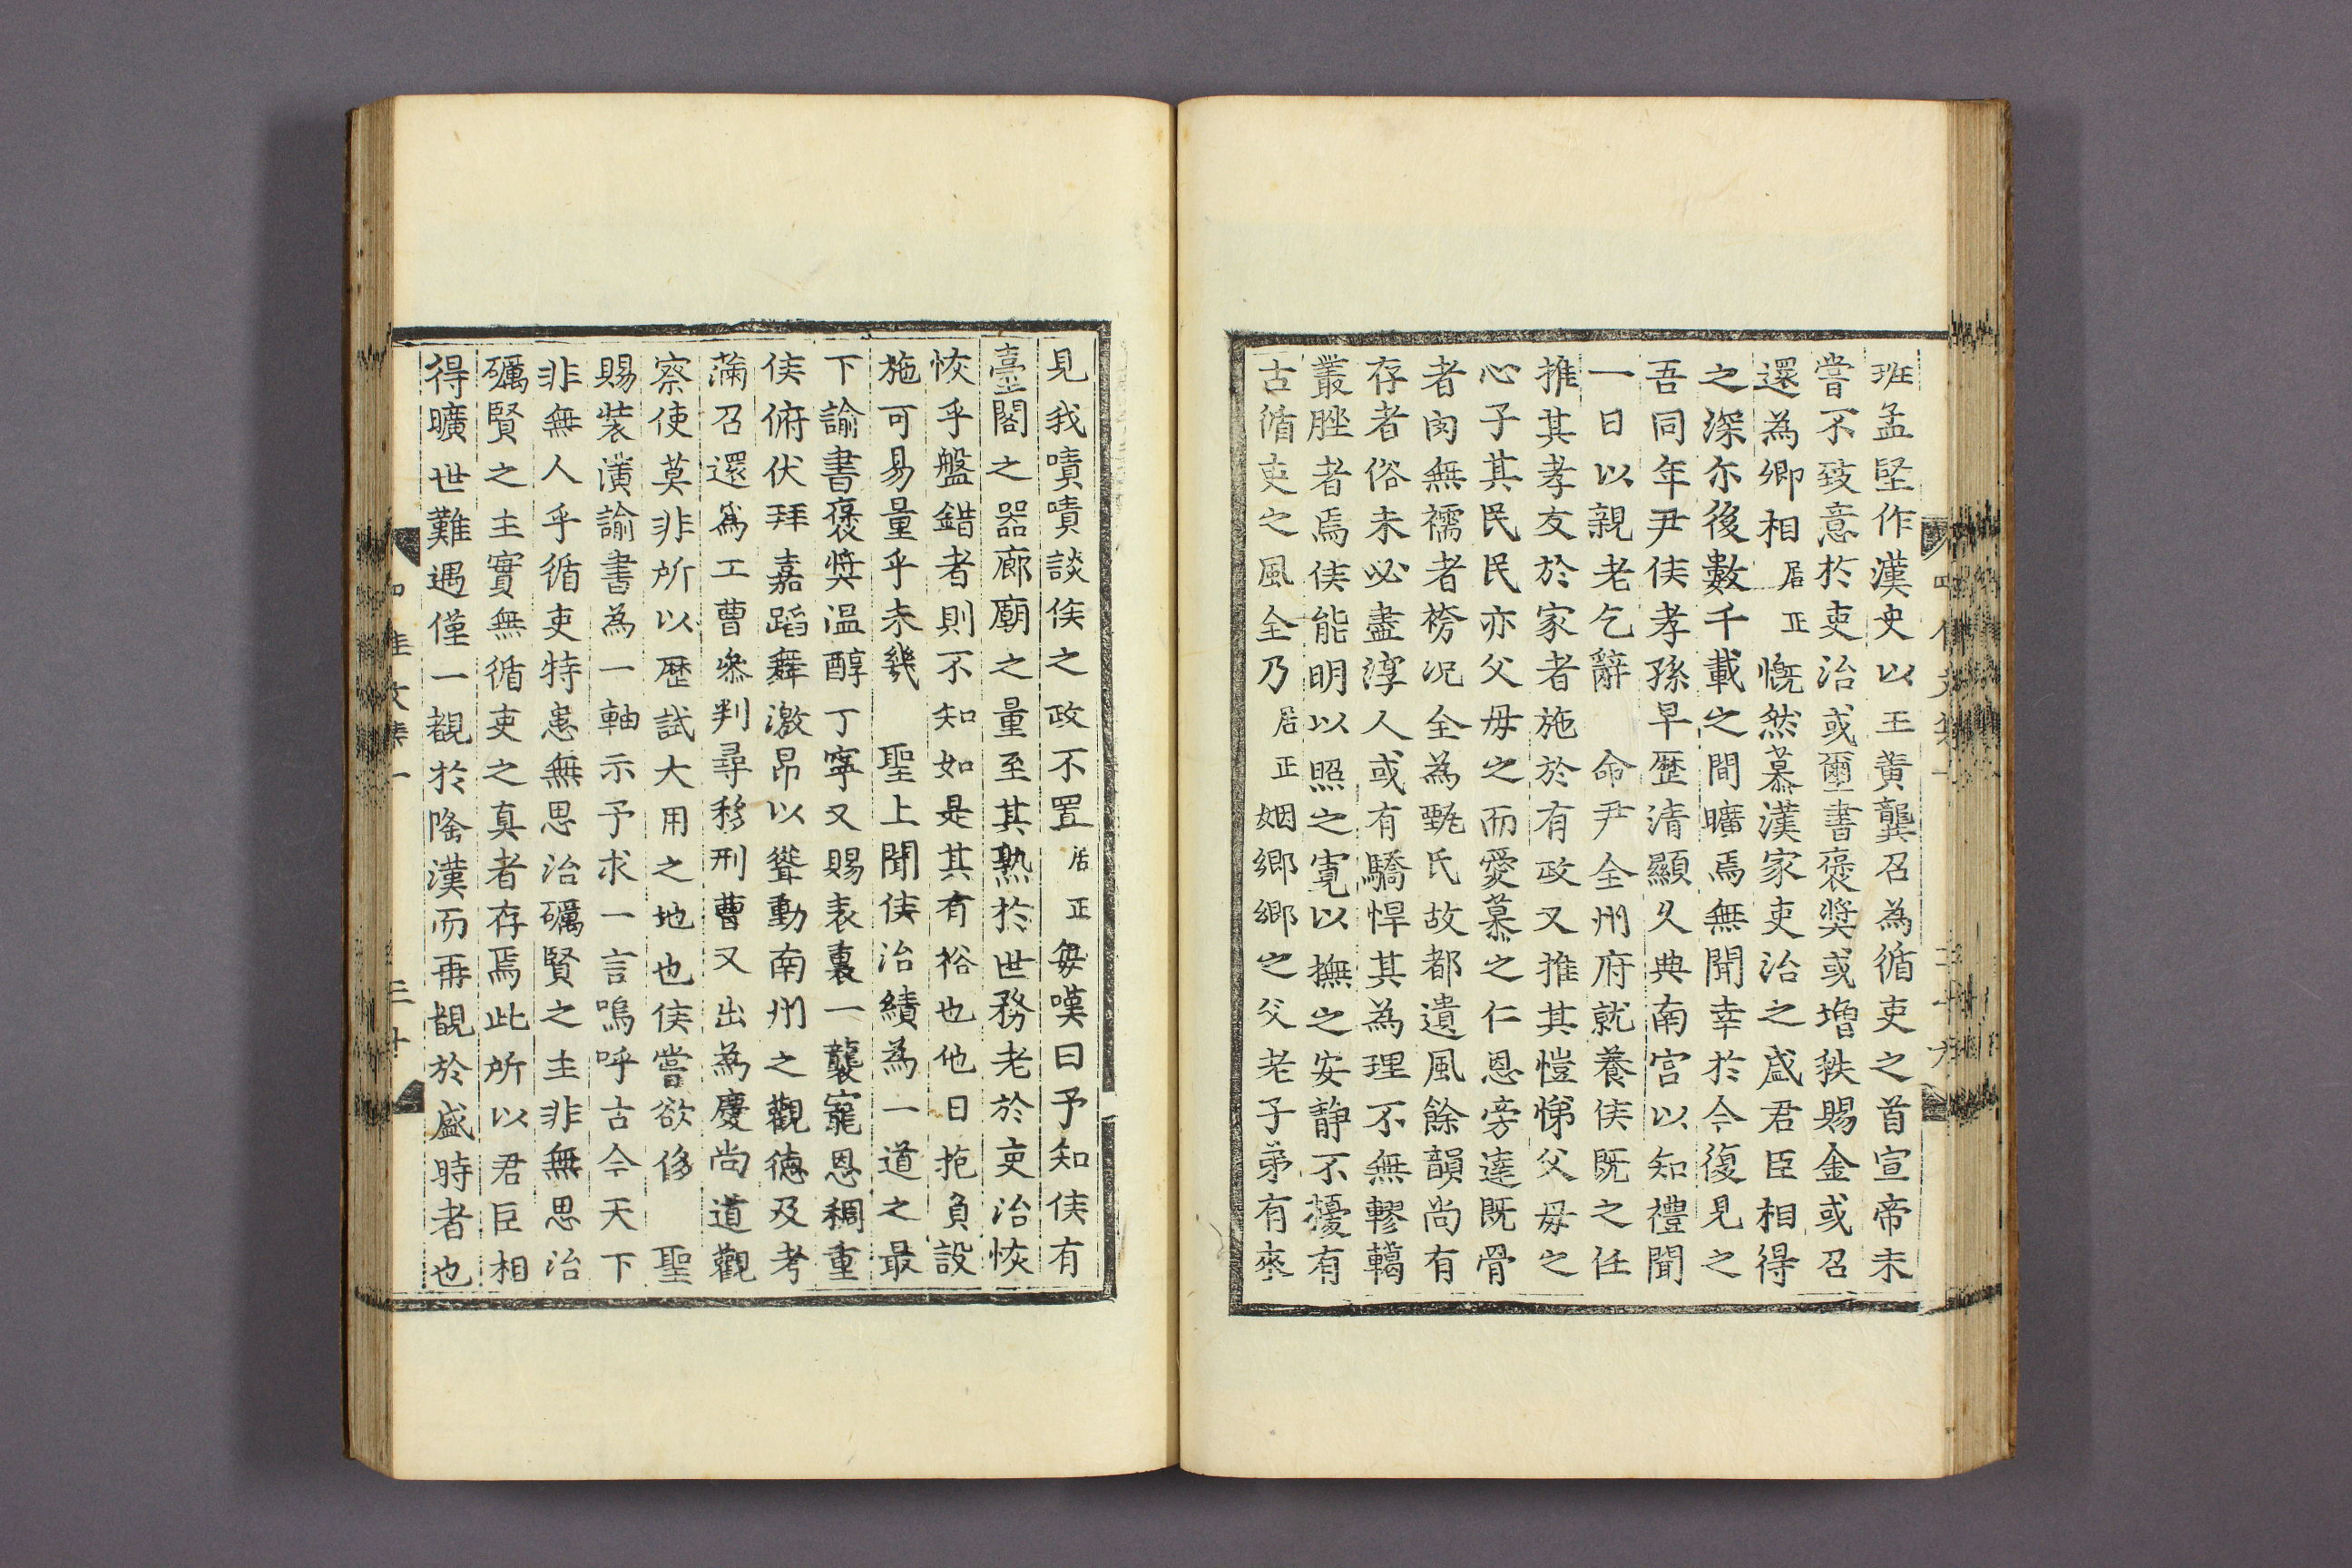 班孟坚作漢史以王黃龔召為循吏之首宣帝未
嘗不致意於吏治或璽書褒奬或增秩賜金或召
還為卿相居正慨然慕漢家吏治之盛君臣相得
之深尓後數千載之間曠焉無聞幸於今復見之
吾同年尹侯孝孫早歷清顯久典南宫以知禮聞
一日以親老乞辭 命尹全州府就養侯既之任
推其孝友於家者施於有政又推其愷悌父母之
心子其民民亦父母之而愛慕之仁恩旁達既骨
者肉無襦者袴况全為甄氏故都遺風餘韻尚有
存者俗未必盡淳人或有驕悍其為理不無轇轕
叢脞者焉侯能明以照之寛以撫之安靜不擾有
古循吏之風全乃居正姻鄉鄉之父老子弟有來
見我嘖嘖談侯之政不置居正每嘆曰予知侯有
臺閣之器廊廟之量至其熟於世務老於吏治恢
恢乎盤錯者則不知如是其有裕也他日抱負設
施可易量乎未幾 聖上聞侯治績為一道之最
下諭書褒奬温醇丁寧又賜表裏一襲寵恩稠重
侯俯伏拜嘉蹈舞激昂以聳動南州之觀德及考
滿召還爲工曹叅判尋移刑曹又出為慶尚道觀
察使莫非所以歷試大用之地也侯嘗欲侈 聖
賜裝潢諭書為一軸示予求一言嗚呼古今天下
非無人乎循吏特患無思治礪賢之主非無思治
礪賢之主實無循吏之真者存焉此所以君臣相
得曠世難遇僅一覩於隆漢而再覩於盛時者也